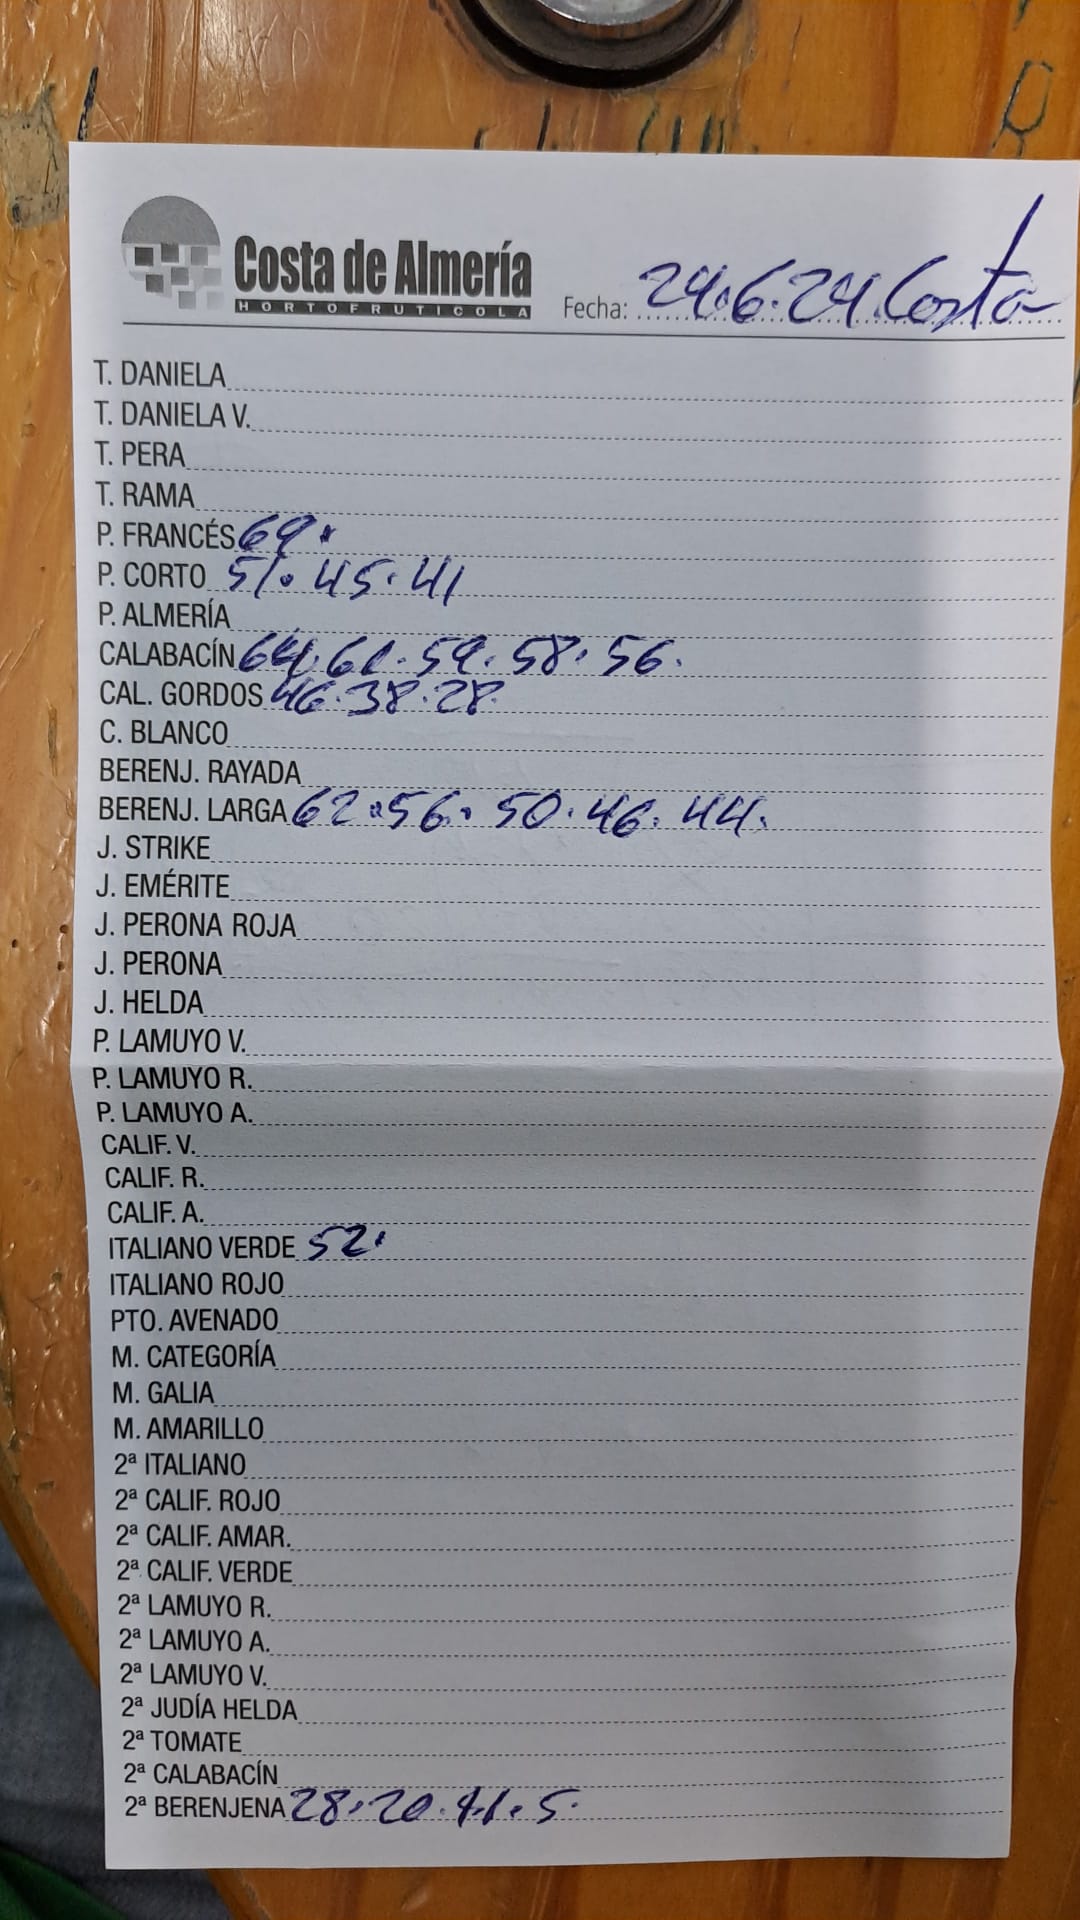 Costa de Almería
HORTOFRUTICOLA
Fecha: 24.6.24 Costa
T. DANIELA
T. DANIELA V.
T. PERA
T. RAMA
P. FRANCÉS 69.
P. CORTO 51. 45. 41
P. ALMERÍA
CALABACÍN 64. 61. 59. 58. 56.
CAL. GORDOS 46. 38. 28.
C. BLANCO
BERENJ. RAYADA
BERENJ. LARGA 62. 56. 50. 46. 44.
J. STRIKE
J. EMÉRITE
J. PERONA ROJA
J. PERONA
J. HELDA
P. LAMUYO V.
P. LAMUYO R.
P. LAMUYO A.
CALIF. V.
CALIF. R.
CALIF. A.
ITALIANO VERDE 52.
ITALIANO ROJO
PTO. AVENADO
M. CATEGORÍA
M. GALIA
M. AMARILLO
2ª ITALIANO
2ª CALIF. ROJO
2ª CALIF. AMAR.
2ª CALIF. VERDE
2ª LAMUYO R.
2ª LAMUYO A.
2ª LAMUYO V.
2ª JUDÍA HELDA
2ª TOMATE
2ª CALABACÍN
2ª BERENJENA 28. 20. 11. 5.